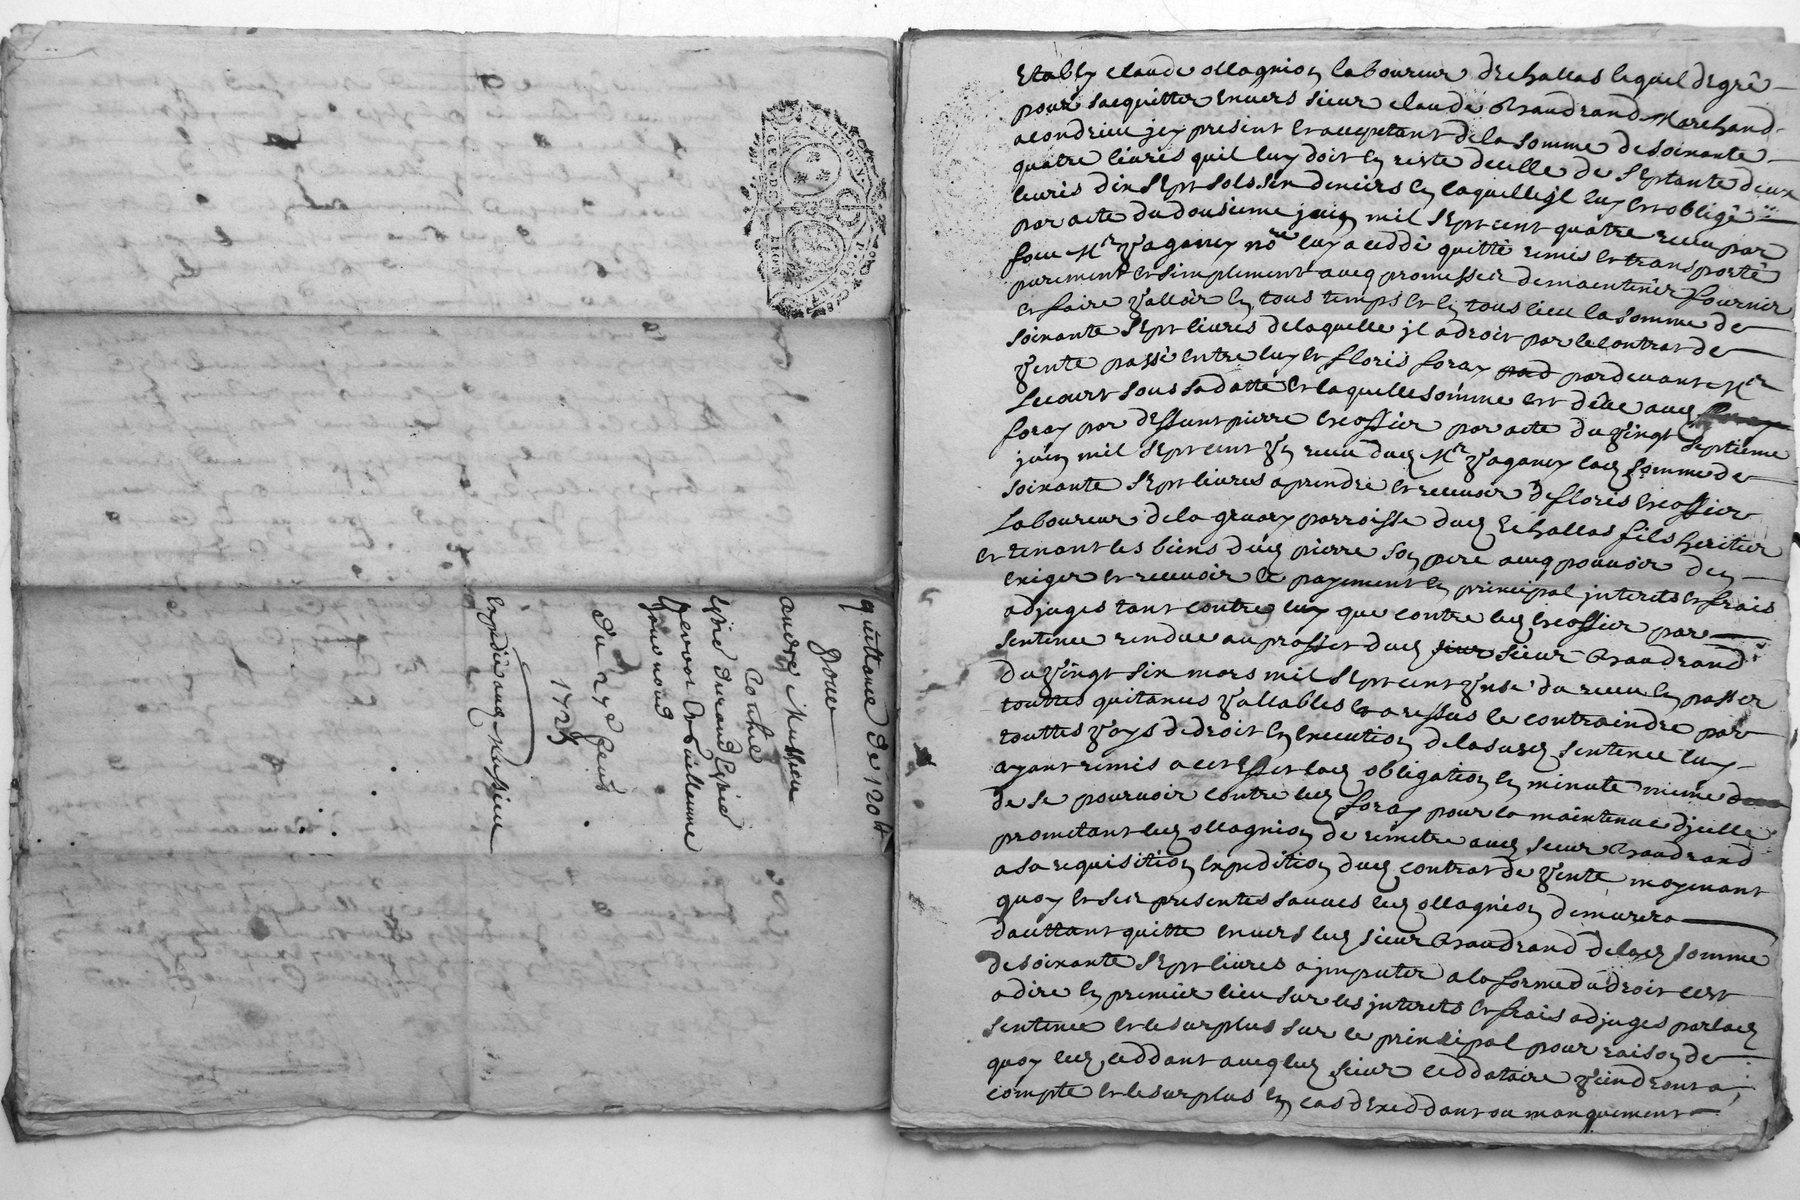 quittance de 120 lt
pour
andré Mussieu
Contre
Esprié durand Esprié
Guillaume
du 27e
1725
Expedié aud Mussieu
GEN. DE LION
Estably claude ollagnion laboureur d'Echallas lequel de gré
pour sacquitter Envers sieur claude Chaudrand Marchand
a condrieu jcy present et acceptant de la somme de soixante
quatre livres quil luy doit En reste de celle de septante deux
livres dix sept sols six deniers En laquelle jl luy est obligé
par acte du dousieme juin mil sept cent quatre receu par
feu Mr Vaganey nore luy a ceddé quitté remis et transporté
purement et simplement avecq promesse de maintenir fournir
et faire Valloir En tous temps et En tous lieu la somme de
soixante sept livres de laquelle jl a droit par le contrat de
Vente passé entre luy et floris foray pardevant Mr
Lecourt sous sa datte Et laquelle somme est deüe aud
foray par deffunt pierre Escoffier par acte du Vingt septieme
juin mil sept cent Vn receu dud Mr Vaganey lad somme de
soixante sept livres a prendre et recevoir de floris Escoffier
Laboureur de la paroisse dud Echallas fils heritier
et tenant les biens dud pierre son pere avecq pouvoir den
exiger et recevoir le payement En principal jnterets et frais
adjuges tant contre luy que contre led Escoffier par
sentence rendue au proffit dud sieur Chaudrand
du Vingt six mars mil sept cent du receu En passer
touttes quitances Vallables Et a ressus le contraindre par
touttes Voyes de droit En Execution de la susd sentence luy
ayant remis a cet Effet lad obligation En minute mesme
de se pourvoir contre led foray pour la maintenue djcelle
prometant led ollagnion de remetre aud sieur Chaudrand
a sa requisition Expedition dud contrat de Vente moyenant
quoy et ses presentes sauves led ollagnion demurera
dauttant quitte envers led sieur Chaudrand de lad somme
de soixante sept livres a jmputer a la forme du droit cest
a dire En premier lieu sur les jnterets et frais adjuges par lad
sentence et le surplus sur le principal pour raison de
quoy led ceddant avecq led sieur ceddataire Viendront a
compte et le surplus En cas dexceddant ou manquement